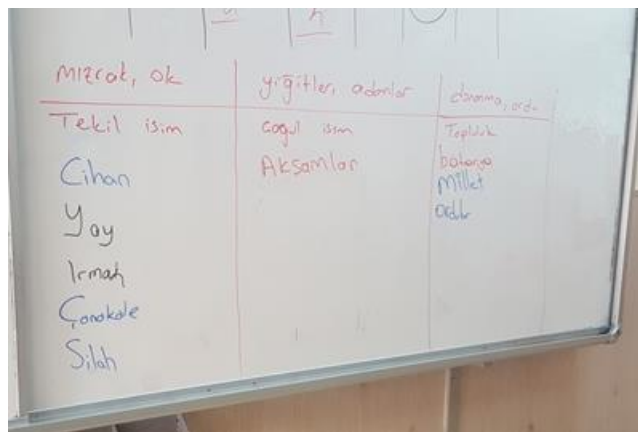 mızrak, ok
yiğitler, adamlar
donanma, ordu
Tekil isim
çoğul isim
Topluluk
Cihan
Akşamlar
batarya
millet
ordu
Yay
Irmak
Çanakkale
Silah